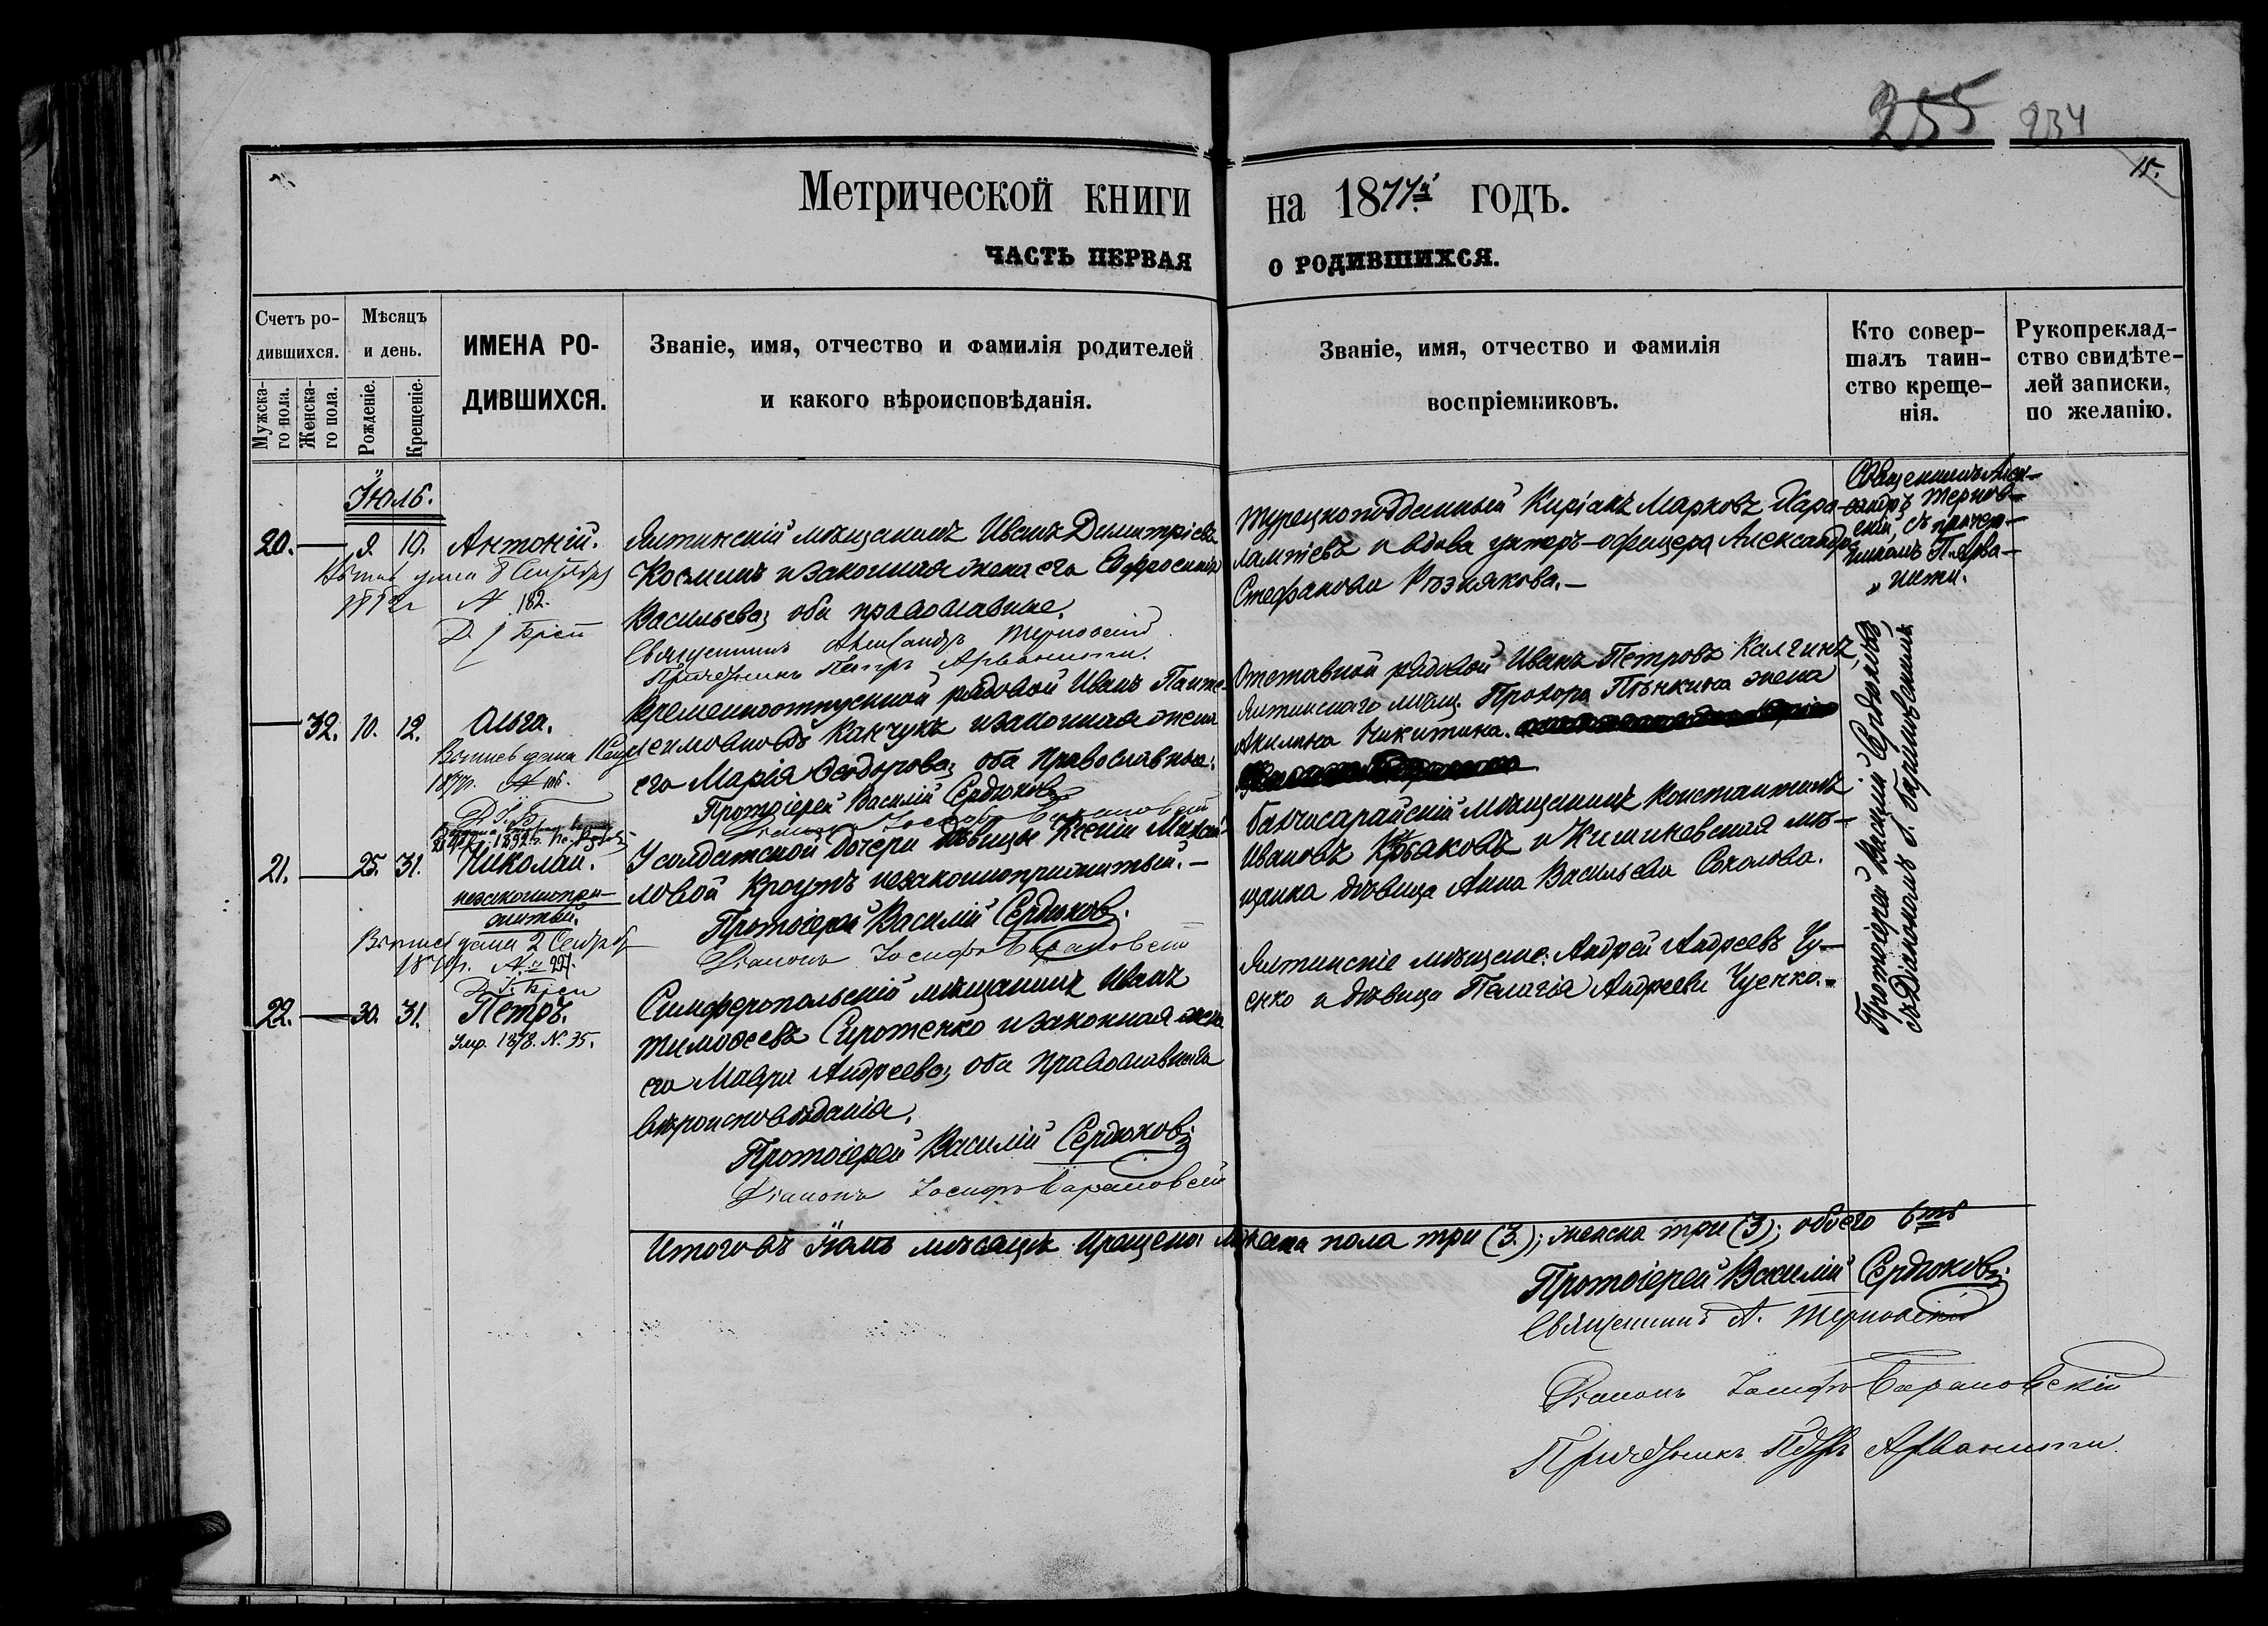 255 234
15.
Метрической книги на 1877й годъ.
ЧАСТЬ ПЕРВАЯ О РОДИВШИХСЯ.
Счетъ родившихся.
Мужскаго пола.
Женскаго пола.
Мѣсяцъ и день.
Рожденіе.
Крещеніе.
ИМЕНА РО-
ДИВШИХСЯ.
Званіе, имя, отчество и фамилія родителей
и какого вѣроисповѣданія.
Званіе, имя, отчество и фамилія
воспріемниковъ.
Кто совер-
шалъ таин-
ство креще-
нія.
Рукопреклад-
ство свидѣте-
лей записки,
по желанію.
Іюль.
20. — 9. 10. Антоній.
8 Сентября
N 182.
Ялтинскій мѣщанинъ Иванъ Димитріевъ
Косминъ и законная жена его Евфросинія
Васильева; оба православные.
Священникъ Александръ Терновскій
Причетникъ Петръ Арванити.
Турецкоподданный Киріакъ Марковъ Хара-
лампіевъ и вдова унтеръ-офицера Александра
Стефанова Познякова. —
Священникъ Алек-
сандръ Тернов-
скій, съ причет-
никомъ П. Арва-
нити.
— 32. 10. 12. Ольга.
Временноотпускной рядовой Иванъ Панте-
леимоновъ Канчукъ и законная жена
его Марія Ѳеодорова; оба православные.
Протоіерей Василій Сердюковъ
Діаконъ Іосифъ Барановскій
Отставной рядовой Иванъ Петровъ Калгинъ,
Ялтинскаго мѣщ. Прохора Пѣнкина жена
Акилина Никитина.
21. — 25. 31. Николай.
незаконнопри-
житый.
2 Сентября
N 227.
У солдатской дочери дѣвицы Ксеніи Михай-
ловой Кроутъ незаконноприжитый. —
Протоіерей Василій Сердюковъ.
Діаконъ Іосифъ Барановскій
Бахчисарайскій мѣщанинъ Константинъ
Ивановъ и Кишиневская мѣ-
щанка дѣвица Анна Васильева Соколова.
22. — 30. 31. Петръ.
1878. N. 35.
Симферопольскій мѣщанинъ Иванъ
Тимоѳеевъ Сиротенко и законная жена
его Мавра Андреева; оба православнаго
вѣроисповѣданія.
Протоіерей Василій Сердюковъ
Діаконъ Іосифъ Барановскій
Ялтинскіе мѣщане: Андрей Андреевъ Чу-
енко и дѣвица Пелагія Андреева Чуенко.
Протоіерей Василій Сердюковъ,
съ Діакономъ І. Барановскимъ.
Итого въ Іюлѣ мѣсяцѣ крещено: мужеска пола три (3.); женска три (3); обоего 6ть
Протоіерей Василій Сердюковъ.
Священникъ А. Терновскій
Діаконъ Іосифъ Барановскій
Причетникъ Петръ Арванити